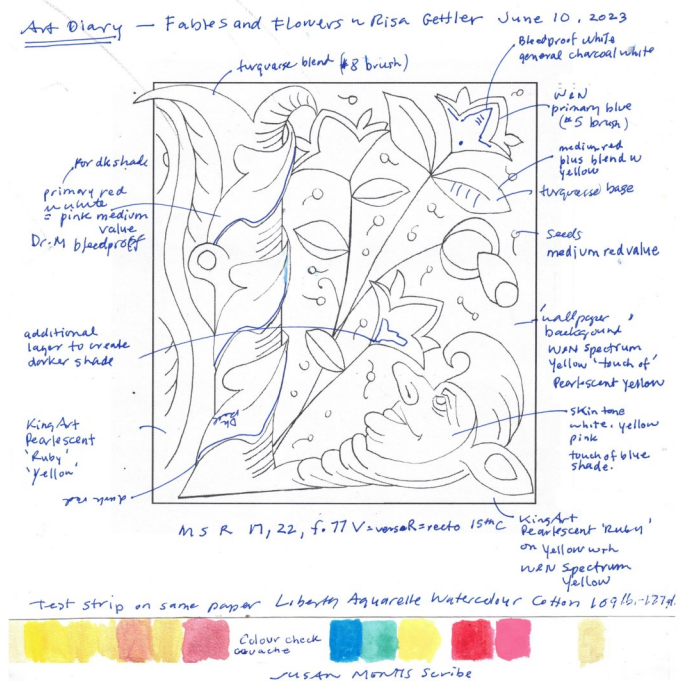 Art Diary — Fables and Flowers w Risa Gettler June 10, 2023
turquoise blend (#8 brush)
Bleedproof white
general charcoal white
W&N
primary blue
(#5 brush)
medium red
plus blend w
yellow
turquoise base
Seeds
medium red value
'wallpaper'
background
W&N Spectrum
Yellow 'touch of'
Pearlescent Yellow
skin tone
white. yellow
pink
touch of blue
shade.
KingArt
Pearlescent 'Ruby'
on yellow with
W&N Spectrum
Yellow
for dk shade
primary red
w white
= pink medium
value
Dr. M bleedproof
additional
layer to create
darker shade
KingArt
Pearlescent
'Ruby'
'Yellow'
dk
MSR 17, 22, f. 77 V=verso R=recto 15th C
Test strip on same paper Liberty Aquarelle Watercolour Cotton
Colour check
gouache
Susan Montis Scribe